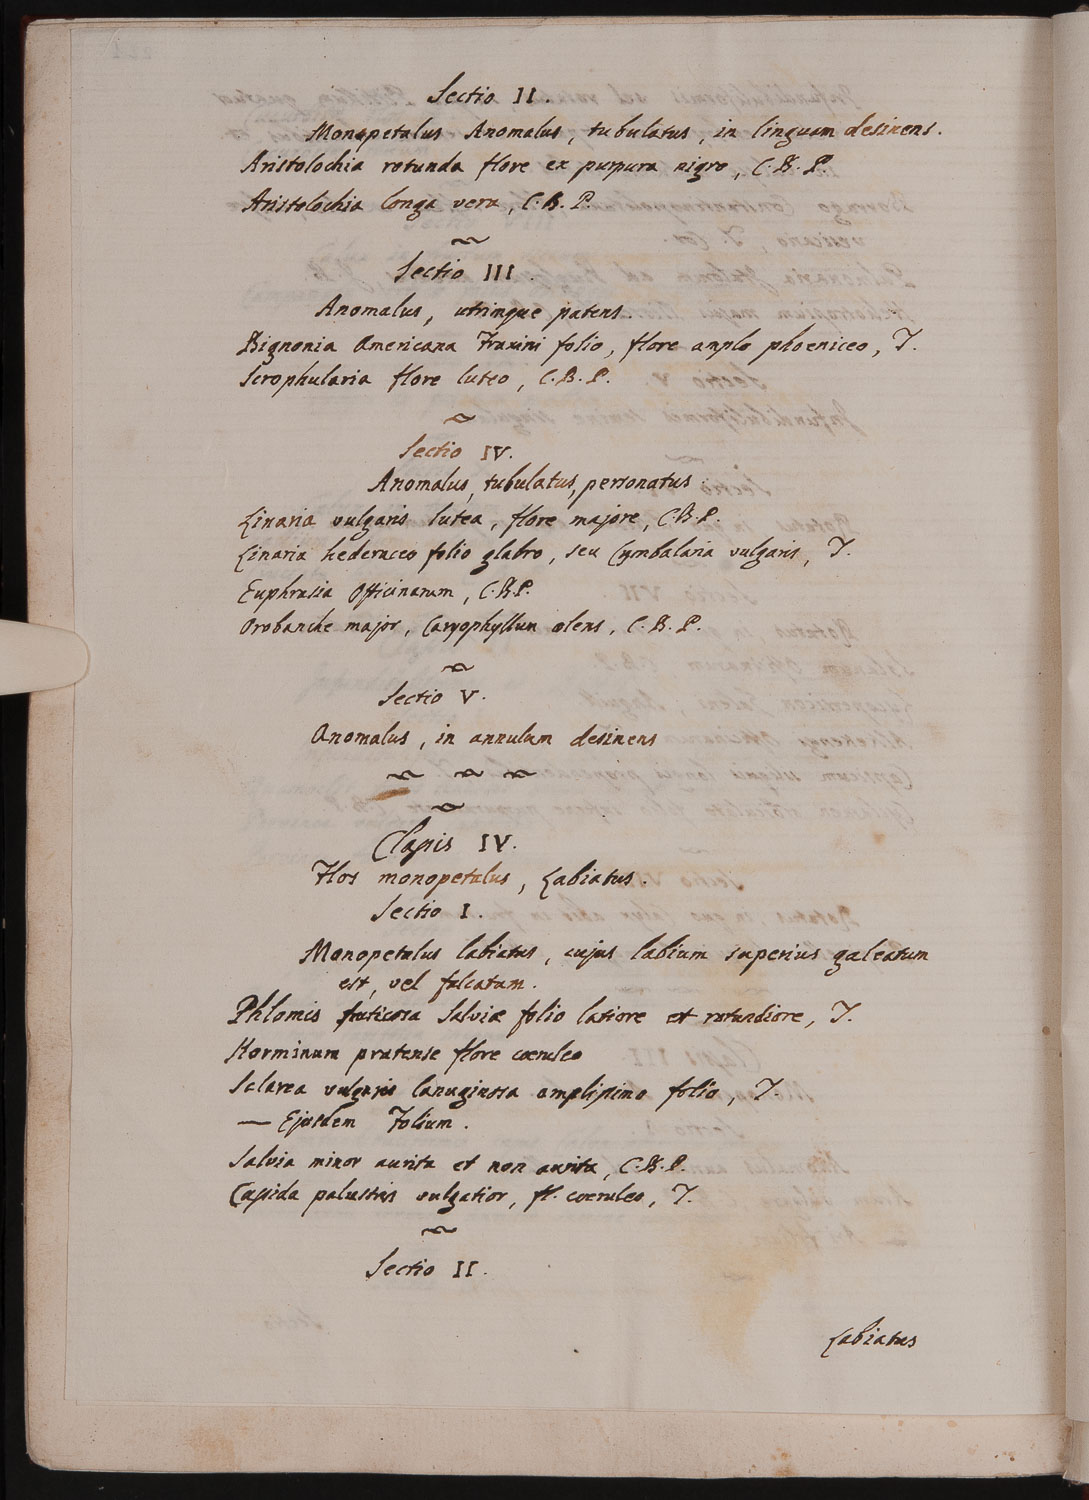 Sectio II.
Monopetalus Anomalus, tubulatus, in linguam desinens.
Aristolochia rotunda flore ex purpura nigro, C.B.P.
Aristolochia longa vera, C.B.P.
Sectio III.
Anomalus, utrinque patens.
Bignonia Americana Fraxini folio, flore amplo phoeniceo, T.
Scrophularia flore luteo, C.B.P.
Sectio IV.
Anomalus, tubulatus, personatus.
Linaria vulgaris lutea, flore majore, C.B.P.
Linaria hederaceo folio glabro, seu Cymbalaria vulgaris, T.
Euphrasia Officinarum, C.B.P.
Orobanche major, Caryophyllum olens, C.B.P.
Sectio V.
Anomalus, in annulum desinens
Classis IV.
Flos monopetalus, Labiatus.
Sectio I.
Monopetalus labiatus, cujus labium superius galeatum
est, vel falcatum.
Phlomis fruticosa Salviæ folio latiore et rotundiore, T.
Horminum pratense flore coeruleo
Sclarea vulgaris lanuginosa amplissimo folio, T.
— Ejusdem Folium.
Salvia minor aurita et non aurita, C.B.P.
Cassida palustris vulgatior, fl. coeruleo, T.
Sectio II.
Labiatus